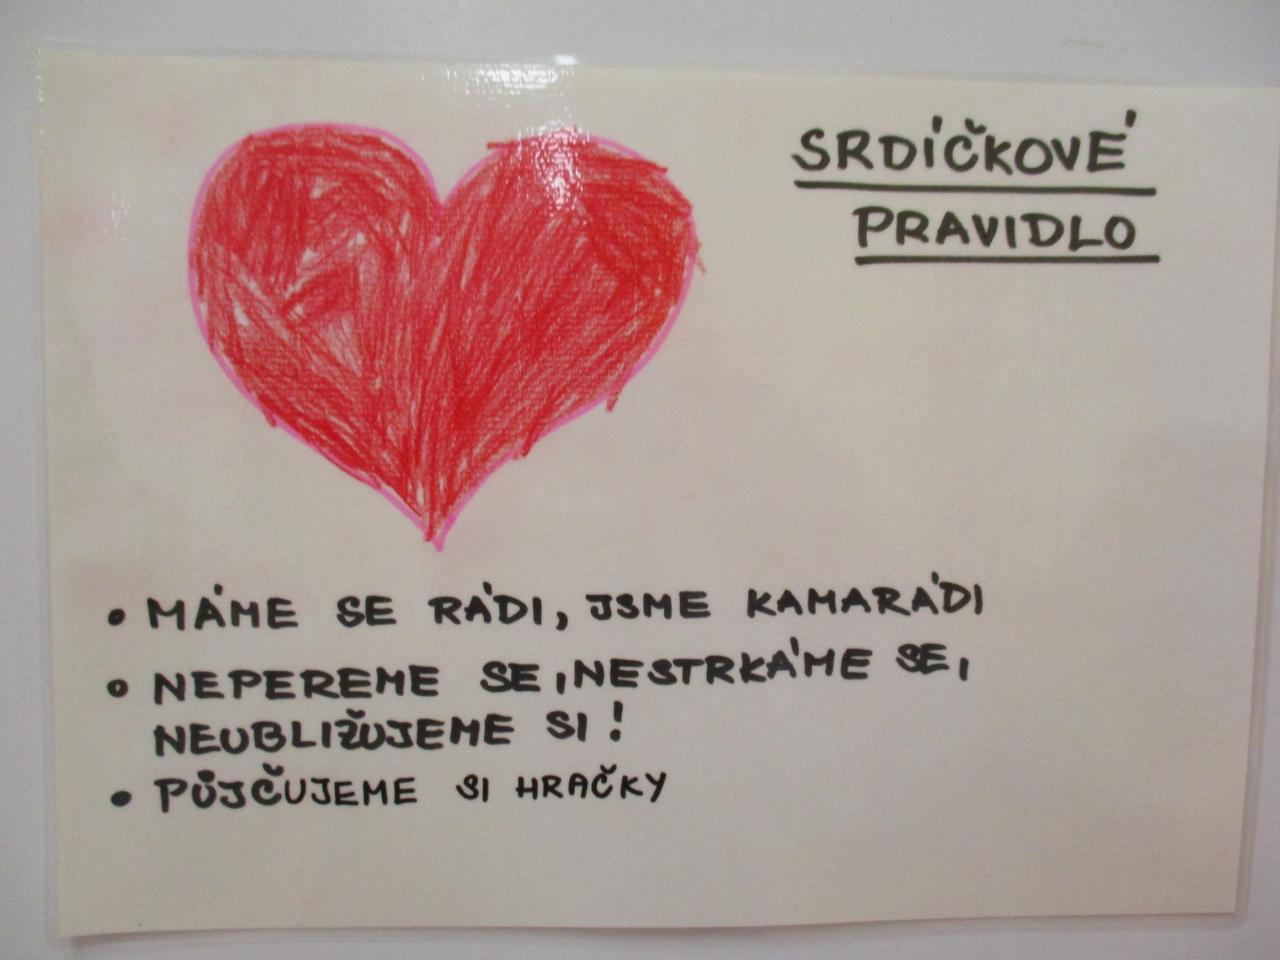 SRDÍČKOVÉ
PRAVIDLO
• MÁME SE RÁDI, JSME KAMARÁDI
• NEPEREME SE, NESTRKÁME SE,
NEUBLIŽUJEME SI!
• PŮJČUJEME SI HRAČKY